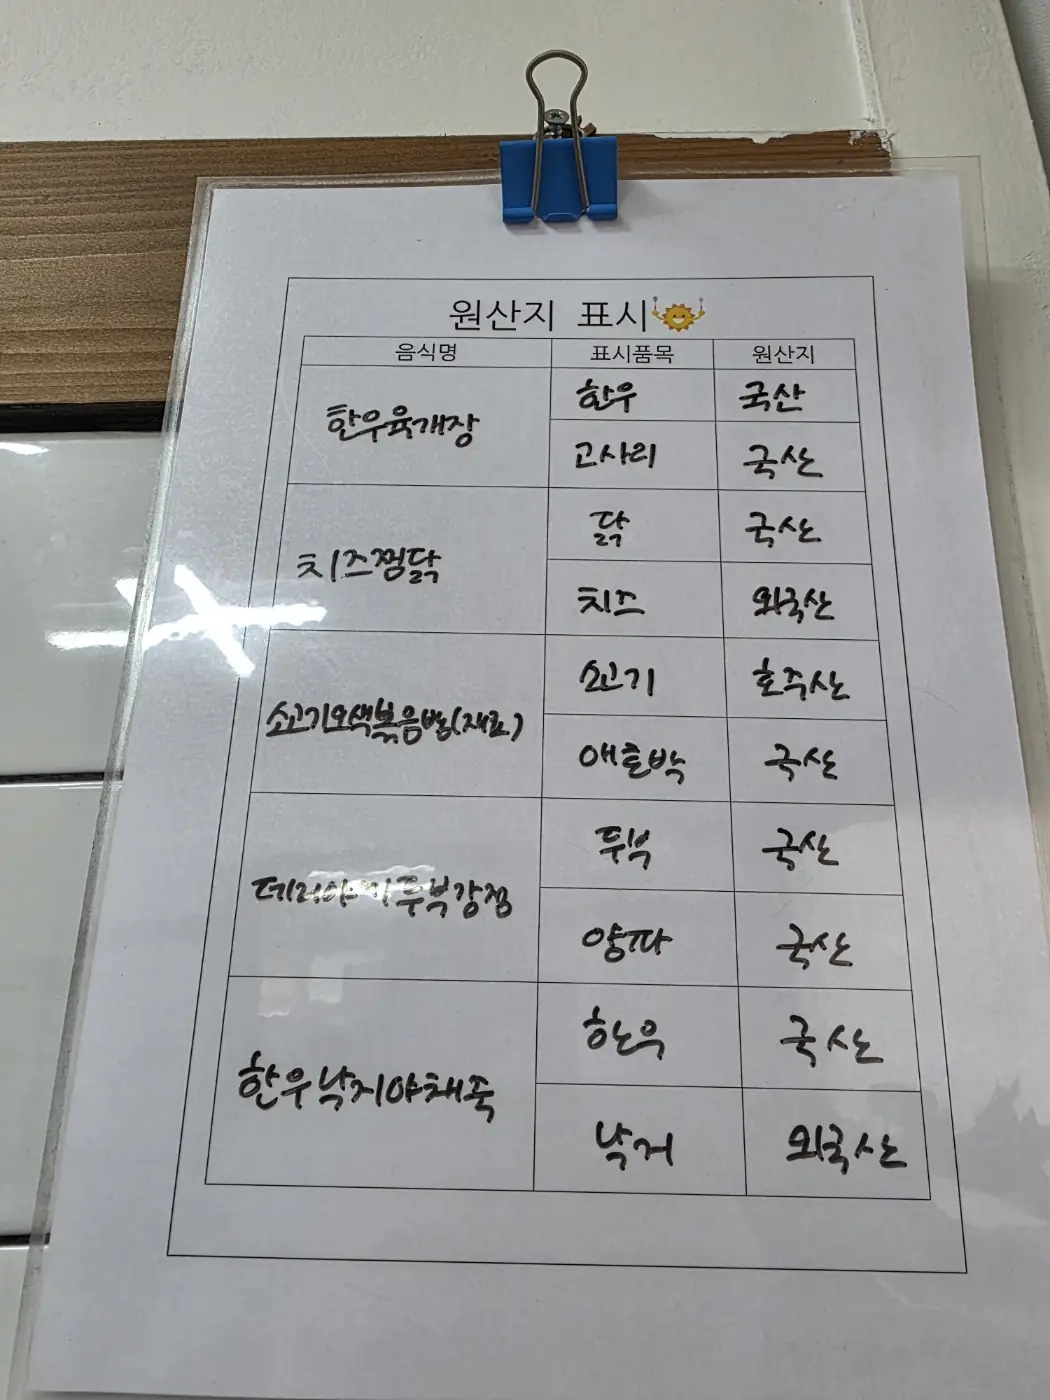 원산지 표시
음식명 표시품목 원산지
한우육개장 한우 국산
고사리 국산
치즈찜닭 닭 국산
치즈 외국산
쇠고기오색볶음밥(재료) 쇠고기 호주산
애호박 국산
데리야끼두부강정 두부 국산
양파 국산
한우낙지야채죽 한우 국산
낙지 외국산